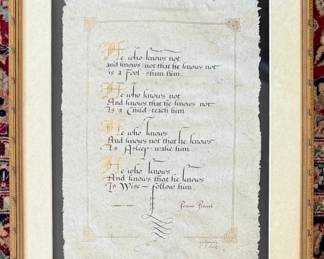 He who knows not
and knows not that he knows not
is a Fool - shun him
He who knows not
And knows that he knows not
Is a Child - teach him
He who knows
And knows not that he knows
Is Asleep - wake him
He who knows
And knows that he knows
Is Wise - follow him
Proverb